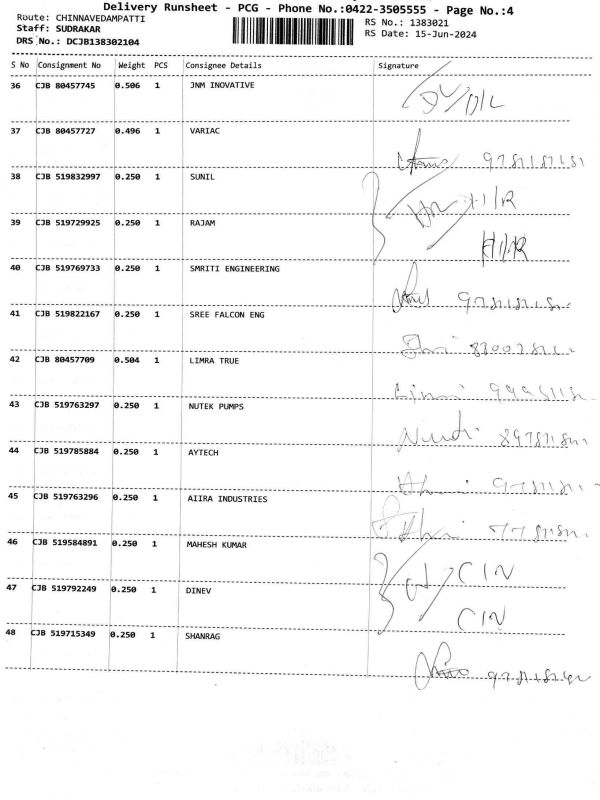 Delivery Runsheet - PCG - Phone No.:0422-3505555 - Page No.:4
Route: CHINNAVEDAMPATTI
RS No.: 1383021
Staff: SUDRAKAR
RS Date: 15-Jun-2024
DRS No.: DCJB138302104
S No Consignment No Weight PCS Consignee Details Signature
36 CJB 80457745 0.506 1 JNM INOVATIVE
37 CJB 80457727 0.496 1 VARIAC
38 CJB 519832997 0.250 1 SUNIL
39 CJB 519729925 0.250 1 RAJAM
40 CJB 519769733 0.250 1 SMRITI ENGINEERING
41 CJB 519822167 0.250 1 SREE FALCON ENG
42 CJB 80457709 0.504 1 LIMRA TRUE
43 CJB 519763297 0.250 1 NUTEK PUMPS
44 CJB 519785884 0.250 1 AYTECH
45 CJB 519763296 0.250 1 AIIRA INDUSTRIES
46 CJB 519584891 0.250 1 MAHESH KUMAR
CIN
47 CJB 519792249 0.250 1 DINEV
CIN
48 CJB 519715349 0.250 1 SHANRAG